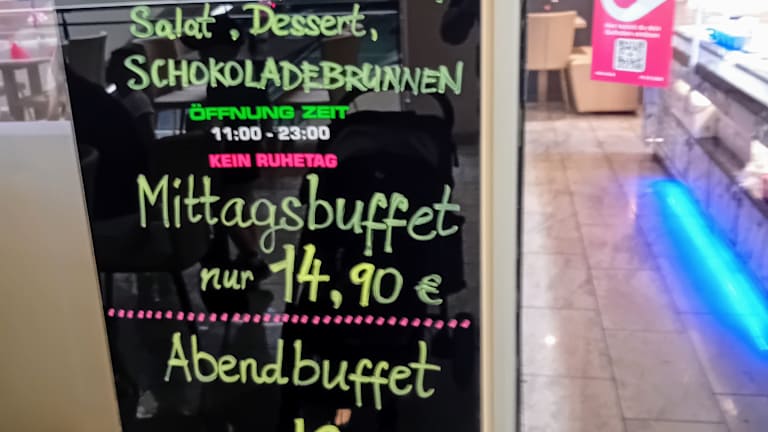 Salat, Dessert,
SCHOKOLADEBRUNNEN
ÖFFNUNG ZEIT
11:00 - 23:00
KEIN RUHETAG
Mittagsbuffet
nur 14,90 €
Abendbuffet